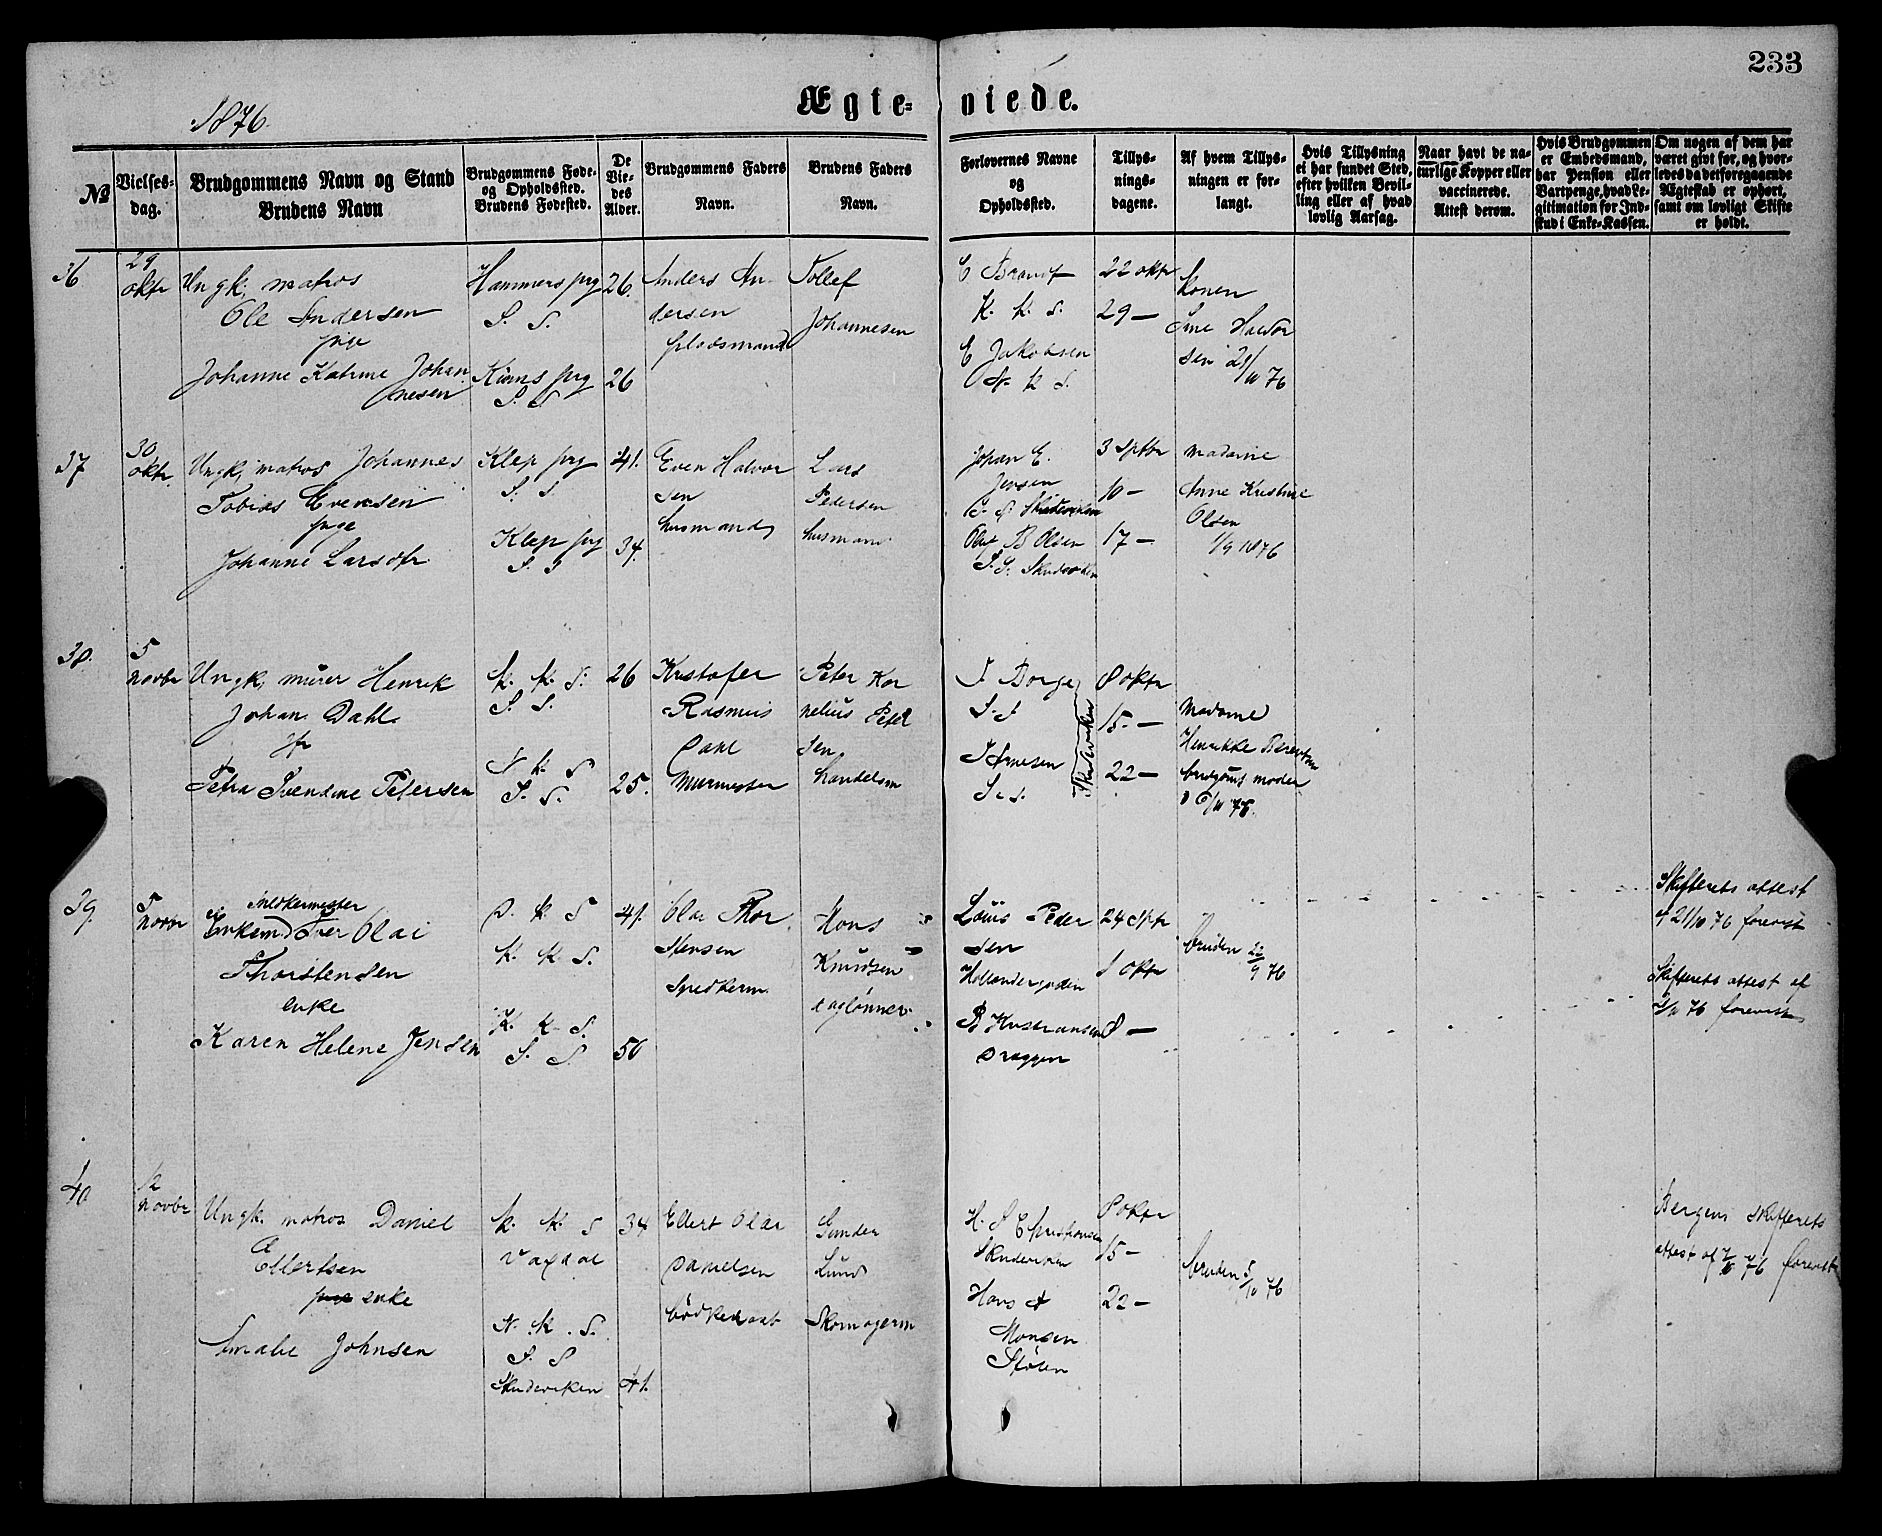 233
Ægte-viede.
1876.
No
Vielses-
dag.
Brudgommens Navn og Stand
Brudens Navn
Brudgommens Føde-
og Opholdssted.
Brudens Fødested.
De
Vie-
des
Alder.
Brudgommens Faders
Navn.
Brudens Faders
Navn.
Forlovernes Navne
og
Opholdssted.
Tillys-
nings-
dagene.
Af hvem Tillys-
ningen er for-
langt.
Hvis Tillysning
ei har fundet Sted,
efter hvilken Bevil-
ling eller af hvad
lovlig Aarsag.
Naar havt de na-
turlige Kopper eller
vaccinerede.
Attest derom.
Hvis Brudgommen
er Embedsmand,
har Pension eller
Vartpenge, hvad Le-
gitimation for Ind-
skud i Enke-Kassen.
Om nogen af dem har
været givt før, og hvor-
ledes da det foregaaende
Ægteskab er ophørt,
samt om lovligt Skifte
er holdt.
36
29
oktr
Ungk. matros
Ole Andersen
pige
Johanne Katrine Johan
nesen
Hammers prg
S. S.
Kinns prg
S. S
26.
26
Anders An
dersen
pladsmand
Tollef
Johannesen
E Brandt
K. k. S.
E Jakobsen
D. k S.
22 oktr
29 —
Konen
Sine Halvor
sen 21/10 76
37
30
oktr
Ungk. matros Johannes
Tobias Evensen
pige
Johanne Larsdtr
Klep prg
S. S
Klep prg
S. S
41.
34.
Even Halvor
sen
husmand
Lars
Pedersen
husmand
Johan E.
Jensen
Skuteviken
Oluf B Olsen
S. S. Skudeviken
3 Septbr
10 —
17 —
madame
Anne Kristine
Olsen
1/9 1876
38.
5
novbr
Ungk. murer Henrik
Johan Dahl
pge
Petra Svendine Petersen
k. k. S.
S. S.
N k. S
S. S.
26
25.
Kristofer
Rasmus
Dahl
Murmester
Peter Kor
nelius Peter
sen
handelsm
J Borge
S. S
J Arnesen
S. S.
Skuteviken
8 oktr
15 —
22 —
Madame
Henrikke Berentsen
brudgoms moder
6/10 76.
39.
5
novbr
snedkermester
Enkemd Iver Olai
Thorstensen
enke
Karen Helene Jensen
D. k S
K. k. S.
K. k. S.
S. S
41.
50
Olai Thor
stensen
Snedkerm.
Hans
Knudsen
daglønner
Louis Peder
sen
Hollendergaden
B Kristiansen
Dræggen
24 Sptr
1 oktr
8 —
bruden 22/9 76
Skifterets attest
af 21/10 76 forevist
Skifterets attest af
2/11 76 forevist
40.
12
novbr
Ungk. matros Daniel
Ellertsen
pige enke
Amalie Johnsen
k. k. S
Vaxdal
N. k. S.
S. S
Skudeviken
34
41.
Ellert Olai
Danielsen
bödkersvt
Gunder
Lund
Skomagerm
H. S Christiansen
Skudeviken
Hans A
Monsen
Stölen
8 oktr
15 —
22 —
bruden 5/10 76
Bergens skifterets
attest af 76 forevist